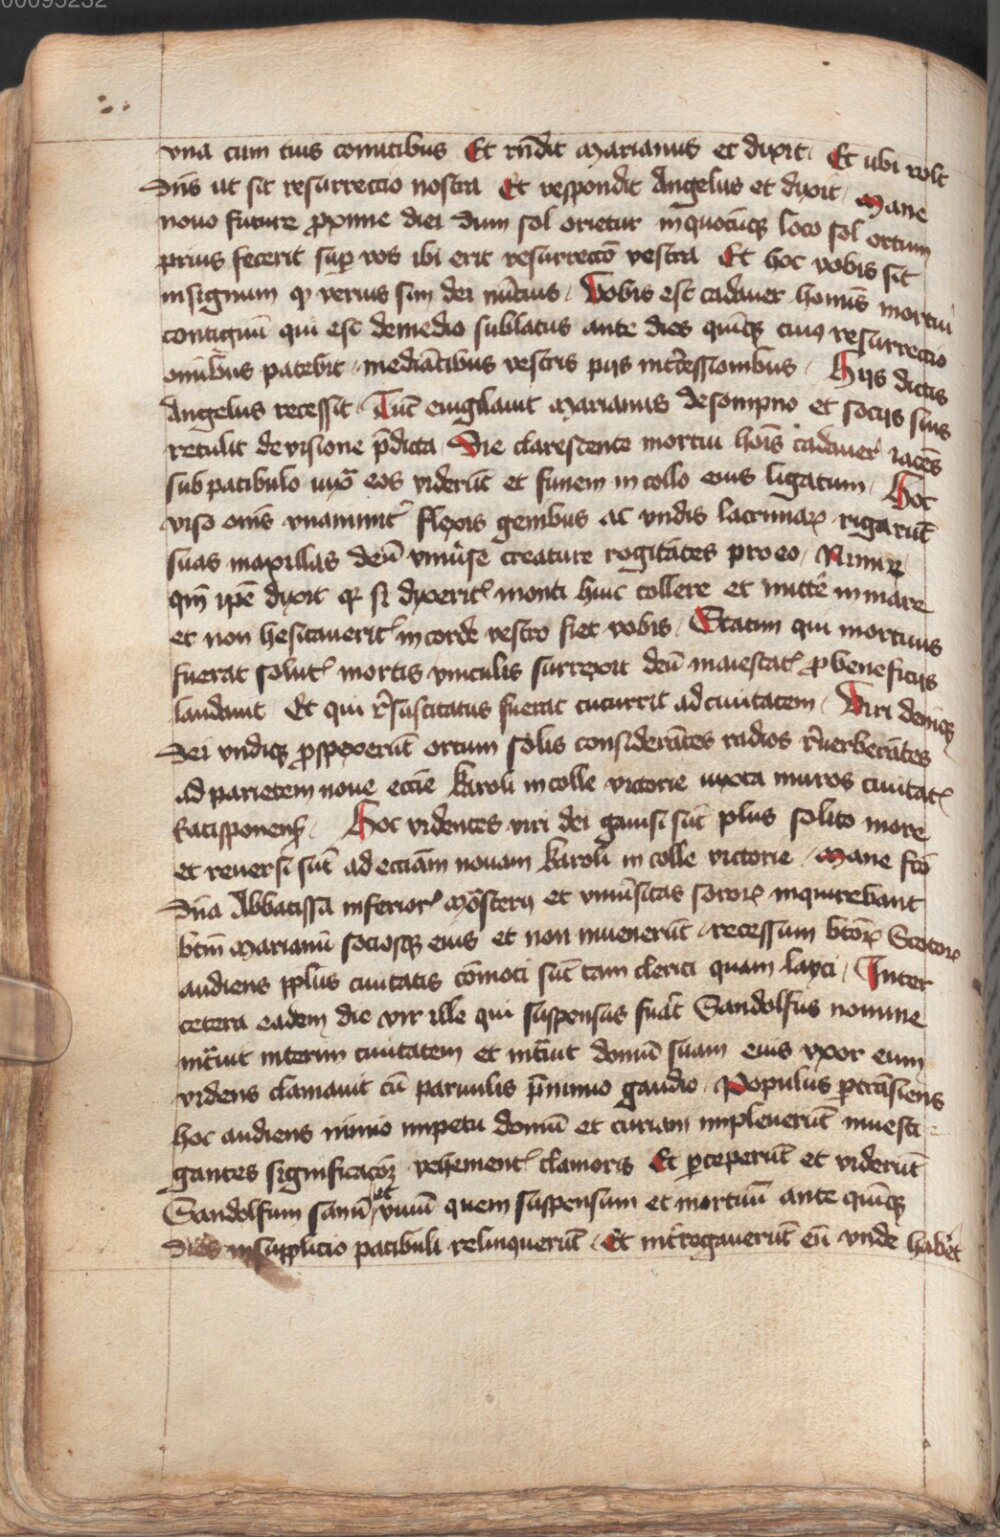 00095232
vna cum tuis comitibus Et rñdit Marianus et dixit Et ubi volt
Dñs ut sit resurrectio nostra Et respondit Angelus et dyxit Mane
nouo future pxime diei dum sol orietur inquocũq loco sol ortum
prius fecerit sup vos ibi erit resurrectõ vestra Et hoc vobis sit
insignum qͥ verus sim dei nũcius Vobis est cadauer homĩs mortui
contiguũ qui est demedio sublatus ante dies quĩq cuiꝰ resurrectio
omĩbus patebit mediãtibus vestris pijs intcessionibus Hijs dictis
Angelus recessit Tũc euigilauit Marianus desompno et socijs suis
retulit devisione p̃dicta Die clarescente mortui hoĩs cadauer iacẽs
sub patibulo iuxᵃ eos viderũt et funem in collo eius ligatum Hoc
viso oms vnanimit flexis genibus ac vndis lacrimaꝝ rigarũt
suas maxillas deũ vniũse creature rogitãtes pro eo
qm̃ ipẽ dyxit qͥ si dyxeritis monti huic tollere et mittẽ inmare
et non hesitaueritis in corde vestro fiet vobis Statim qui mortuus
fuerat solutꝰ mortis vinculis surrexit deũ maiestatis p beneficijs
laudauit Et qui r̃suscitatus fuerat cucurrit ad ciuitatem Viri deniq
Dei vndiq pspexerũt ortum solis considerãtes radios r̃uerberãtes
ad parietem noue ecciẽ karoli in colle victorie iuxta muros ciuitatis
Ratisponens Hoc videntes viri dei gauisi sũt plus solito more
et reuersi sũt ad ecciãm nouam karoli in colle victorie Mane fcõ
Dña Abbatissa inferioris mõsterij et vniũsitas soroꝝ inquirebant
btm̃ Marianũ sociosq eius et non inuenerũt recessum btõꝝ Scotoꝝ
audiens pplus ciuitatis cõmoti sũt tam clerici quam layci Inter
cetera eadem die vir ille qui suspensus fuãt Sandolfus nomine
intᵃuit interim ciuitatem et intᵃuit domũ suam eius vxor eum
videns clamauit cũ paruulis p̃nimio gaudio Populus ptrãsiens
hoc audiens nimio impetu domũ et curiam impleuerũt inuesti
gantes significacõꝝ vehementis clamoris Et pceperũt et viderũt
Sandolfum sanũ et viuũ quem suspensum et mortuũ ante quĩq
Dies insupplicio patibuli relinquerũt Et introgauerũt eũ vnde habẽt